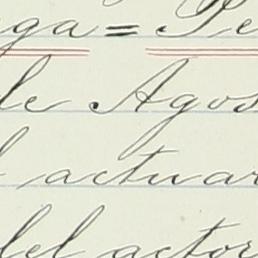 ga = Pe
de Agos
l actuar
del actor